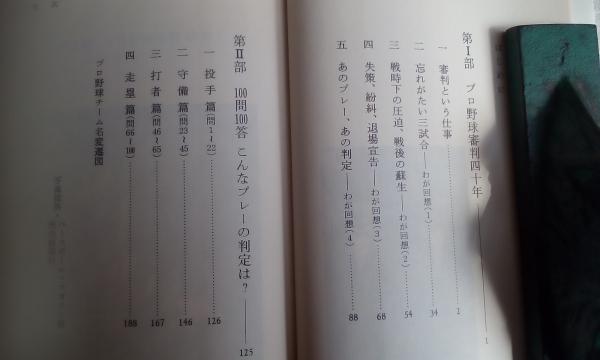 第Ⅰ部 プロ野球審判四十年 1
一 審判という仕事 2
二 忘れがたい三試合——わが回想(1) 34
三 戦時下の圧迫、戦後の蘇生——わが回想(2) 54
四 失策、紛糾、退場宣告——わが回想(3) 68
五 あのプレー、あの判定——わが回想(4) 88
第Ⅱ部 100問100答 こんなプレーの判定は? 125
一 投手篇(問1〜22) 126
二 守備篇(問23〜45) 146
三 打者篇(問46〜65) 167
四 走塁篇(問66〜100) 188
プロ野球チーム名変遷図